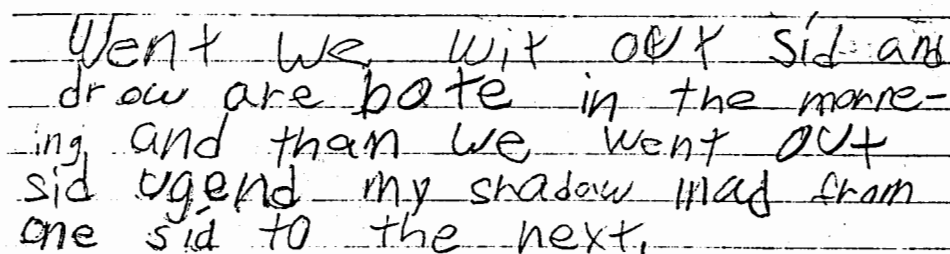 Went we wit out sid and
drow are bote in the monne-
ing and than we went out
sid ugend my shadow mad from
one sid to the next.